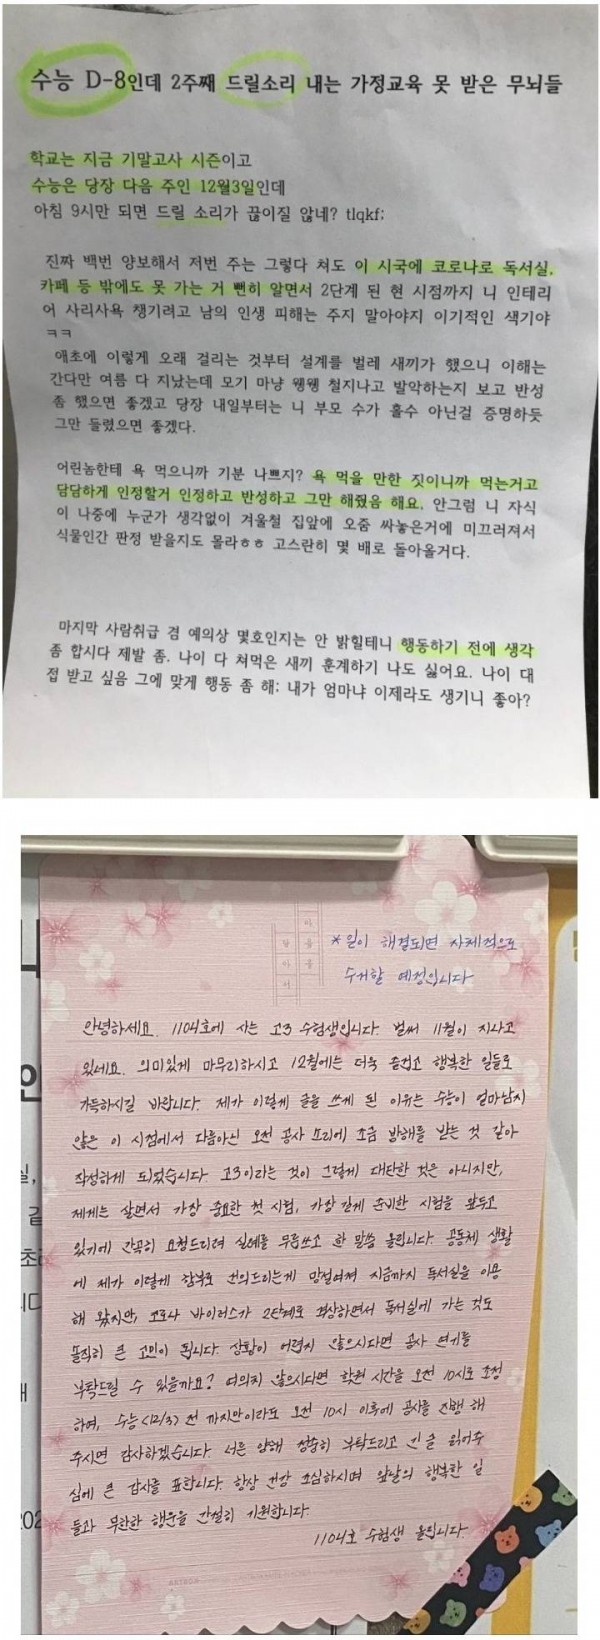 수능 D-8인데 2주째 드릴소리 내는 가정교육 못 받은 무뇌들
학교는 지금 기말고사 시즌이고
수능은 당장 다음 주인 12월3일인데
아침 9시만 되면 드릴 소리가 끊이질 않네? tlqkf;
진짜 백번 양보해서 저번 주는 그렇다 쳐도 이 시국에 코로나로 독서실,
카페 등 밖에도 못 가는 거 뻔히 알면서 2단계 된 현 시점까지 니 인테리
어 사리사욕 챙기려고 남의 인생 피해는 주지 말아야지 이기적인 색기야
ㅋㅋ
애초에 이렇게 오래 걸리는 것부터 설계를 벌레 새끼가 했으니 이해는
간다만 여름 다 지났는데 모기 마냥 웽웽 철지나고 발악하는지 보고 반성
좀 했으면 좋겠고 당장 내일부터는 니 부모 수가 홀수 아닌걸 증명하듯
그만 들렸으면 좋겠다.
어린놈한테 욕 먹으니까 기분 나쁘지? 욕 먹을 만한 짓이니까 먹는거고
담담하게 인정할거 인정하고 반성하고 그만 해줬음 해요. 안그럼 니 자식
이 나중에 누군가 생각없이 겨울철 집앞에 오줌 싸놓은거에 미끄러져서
식물인간 판정 받을지도 몰라ㅎㅎ 고스란히 몇 배로 돌아올거다.
마지막 사람취급 겸 예의상 몇호인지는 안 밝힐테니 행동하기 전에 생각
좀 합시다 제발 좀. 나이 다 쳐먹은 새끼 훈계하기 나도 싫어요. 나이 대
접 받고 싶음 그에 맞게 행동 좀 해; 내가 엄마냐 이제라도 생기니 좋아?
*일이 해결되면 자체적으로
수거할 예정입니다
안녕하세요. 1104호에 사는 고3 수험생입니다. 벌써 11월이 지나고
있네요. 의미있게 마무리하시고 12월에는 더욱 즐겁고 행복한 일들로
가득하시길 바랍니다. 제가 이렇게 글을 쓰게 된 이유는 수능이 얼마남지
않은 이 시점에서 다름아닌 오전 공사 소리에 조금 방해를 받는 것 같아
작성하게 되었습니다. 고3이라는 것이 그렇게 대단한 것은 아니지만,
제게는 살면서 가장 중요한 첫 시험, 가장 길게 준비한 시험을 앞두고
있기에 간곡히 요청드리려 실례를 무릅쓰고 한 말씀 올립니다. 공동체 생활
에 제가 이렇게 함부로 건의드리는게 망설여져 지금까지 독서실을 이용
해 왔지만, 코로나 바이러스가 2단계로 격상하면서 독서실에 가는 것도
솔직히 큰 고민이 됩니다. 상황이 어렵지 않으시다면 공사 연기를
부탁드릴 수 있을까요? 여의치 않으시다면 학원 시간을 오전 10시로 조정
하여, 수능(12/3) 전 까지만이라도 오전 10시 이후에 공사를 진행 해
주시면 감사하겠습니다. 너른 양해 정중히 부탁드리고 긴 글 읽어주
심에 큰 감사를 표합니다. 항상 건강 조심하시며 앞날의 행복한 일
들과 무한한 행운을 간절히 기원합니다.
1104호 수험생 올립니다.